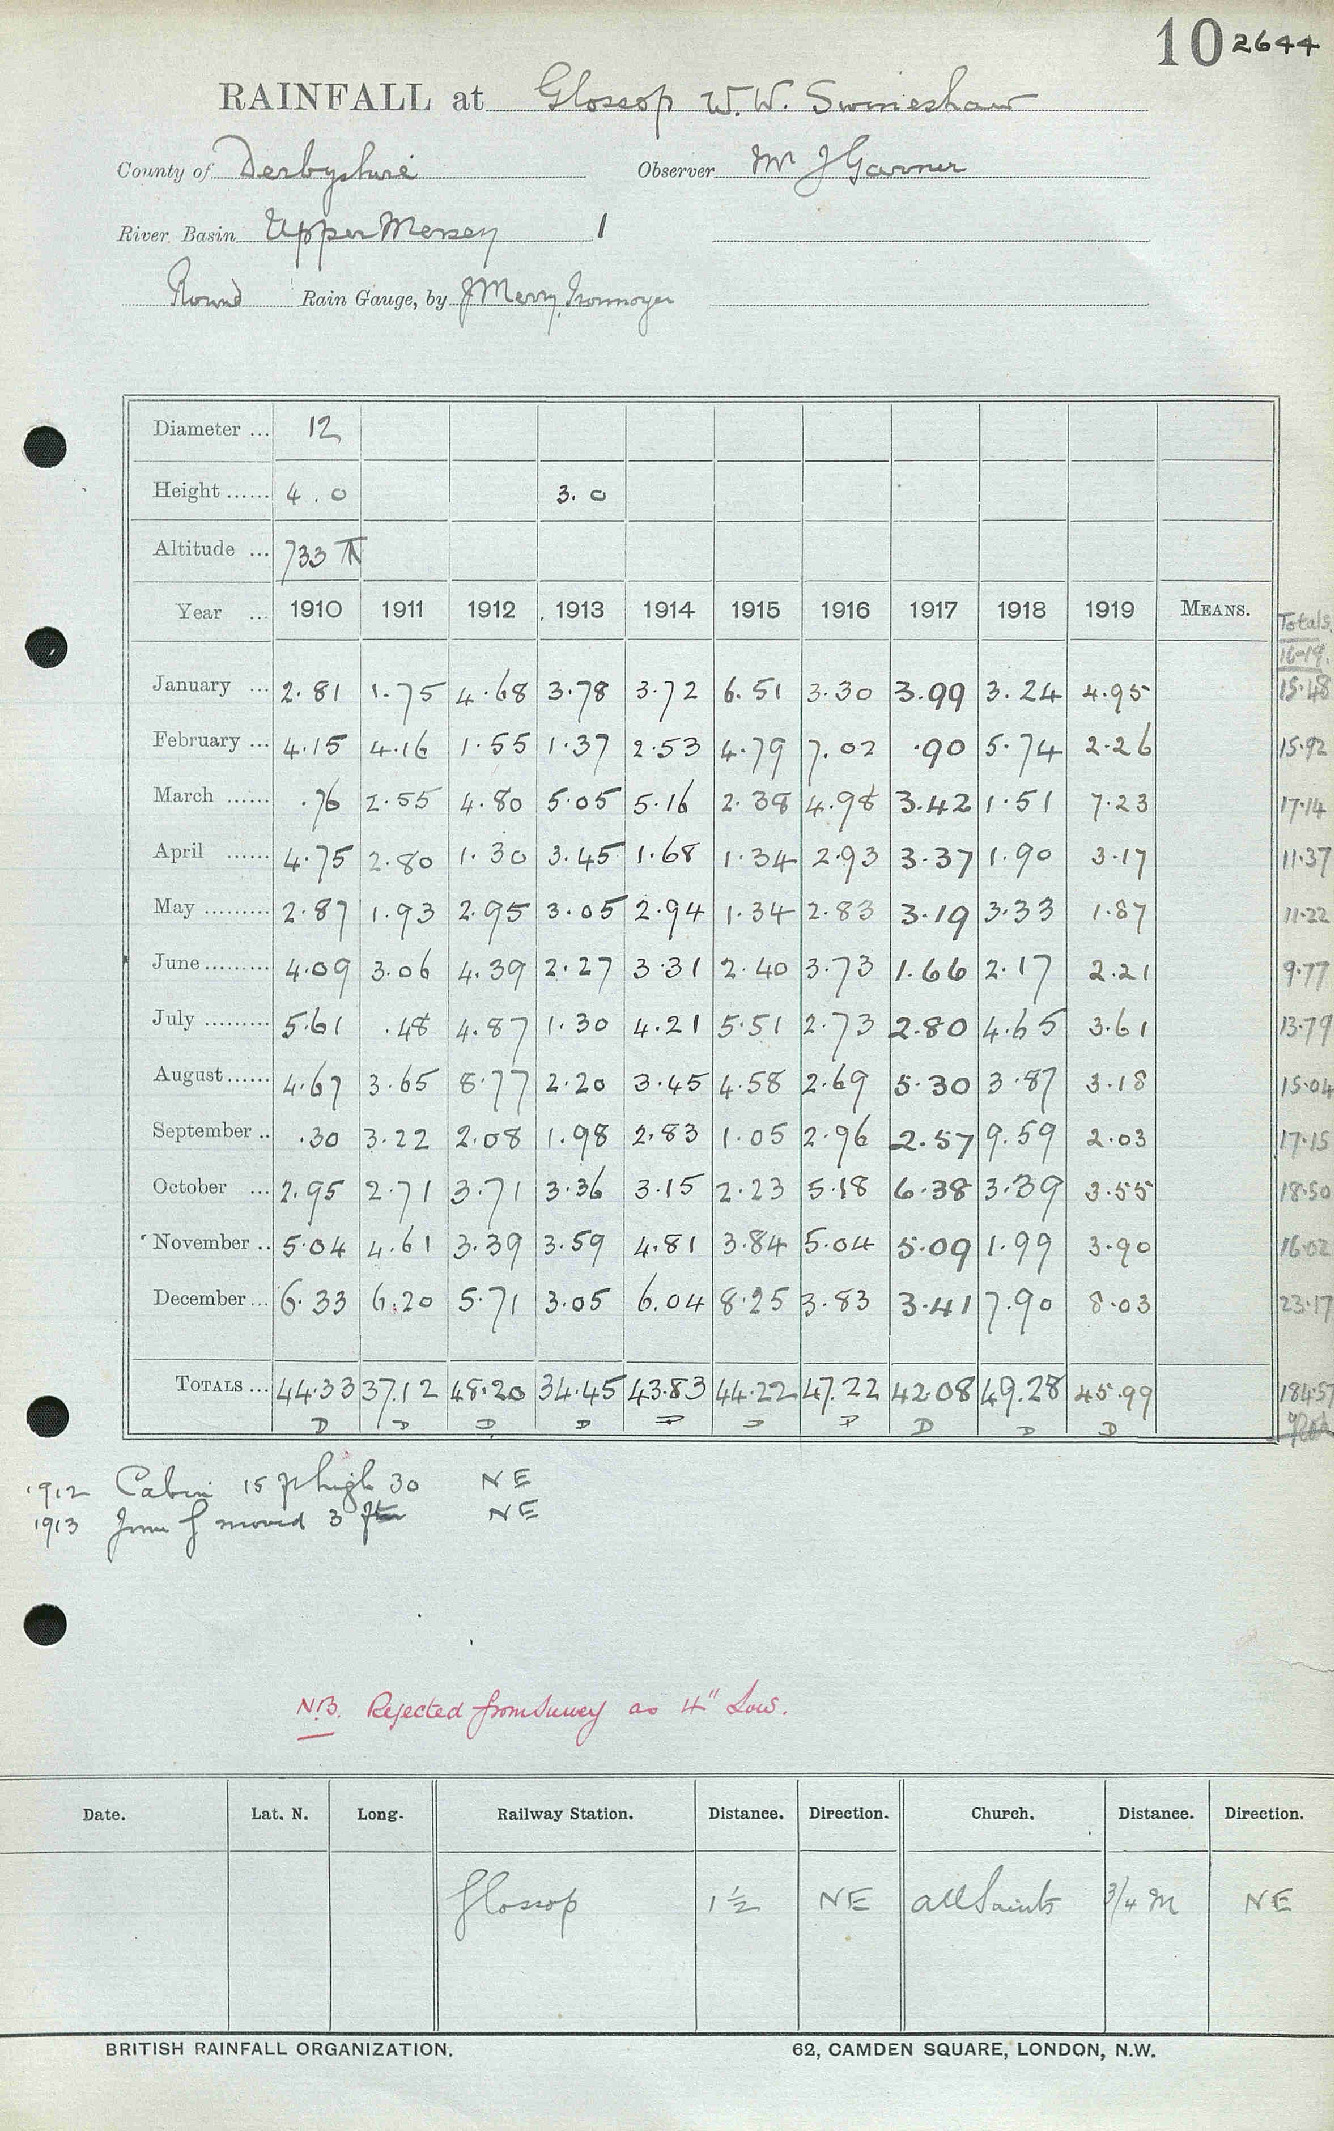 10 2644
RAINFALL at Glossop W.W. Swineshaw
County of Derbyshire Observer Mr J Garner
River Basin Upper Mersey 1
Round Rain Gauge, by J Merry, Ironmonger
Diameter ... 12
Height ...... 4.0 3.0
Altitude ... 733
Year ... 1910 1911 1912 1913 1914 1915 1916 1917 1918 1919 MEANS. Totals
16-19.
January ... 2.81 1.75 4.68 3.78 3.72 6.51 3.30 3.99 3.24 4.95 15.48
February ... 4.15 4.16 1.55 1.37 2.53 4.79 7.02 .90 5.74 2.26 15.92
March ...... .76 2.55 4.80 5.05 5.16 2.38 4.98 3.42 1.51 7.23 17.14
April ...... 4.75 2.80 1.30 3.45 1.68 1.34 2.93 3.37 1.90 3.17 11.37
May ......... 2.87 1.93 2.95 3.05 2.94 1.34 2.83 3.19 3.33 1.87 11.22
June ......... 4.09 3.06 4.39 2.27 3.31 2.40 3.73 1.66 2.17 2.21 9.77
July ......... 5.61 .48 4.87 1.30 4.21 5.51 2.73 2.80 4.65 3.61 13.79
August ...... 4.67 3.65 8.77 2.20 3.45 4.58 2.69 5.30 3.87 3.18 15.04
September .. .30 3.22 2.08 1.98 2.83 1.05 2.96 2.57 9.59 2.03 17.15
October ... 2.95 2.71 3.71 3.36 3.15 2.23 5.18 6.38 3.39 3.55 18.50
November .. 5.04 4.61 3.39 3.59 4.81 3.84 5.04 5.09 1.99 3.90 16.02
December ... 6.33 6.20 5.71 3.05 6.04 8.25 3.83 3.41 7.90 8.03 23.17
TOTALS ... 44.33 37.12 48.20 34.45 43.83 44.22 47.22 42.08 49.28 45.99 184.57
D D D D D D D D D D
1912 Cabin 15 ft high 30 NE
1913 moved 3 NE
N.B. Rejected from Survey as 4" Low.
Date. Lat. N. Long. Railway Station. Distance. Direction. Church. Distance. Direction.
Glossop 1 1/2 NE All Saints 3/4 M NE
BRITISH RAINFALL ORGANIZATION. 62, CAMDEN SQUARE, LONDON, N.W.